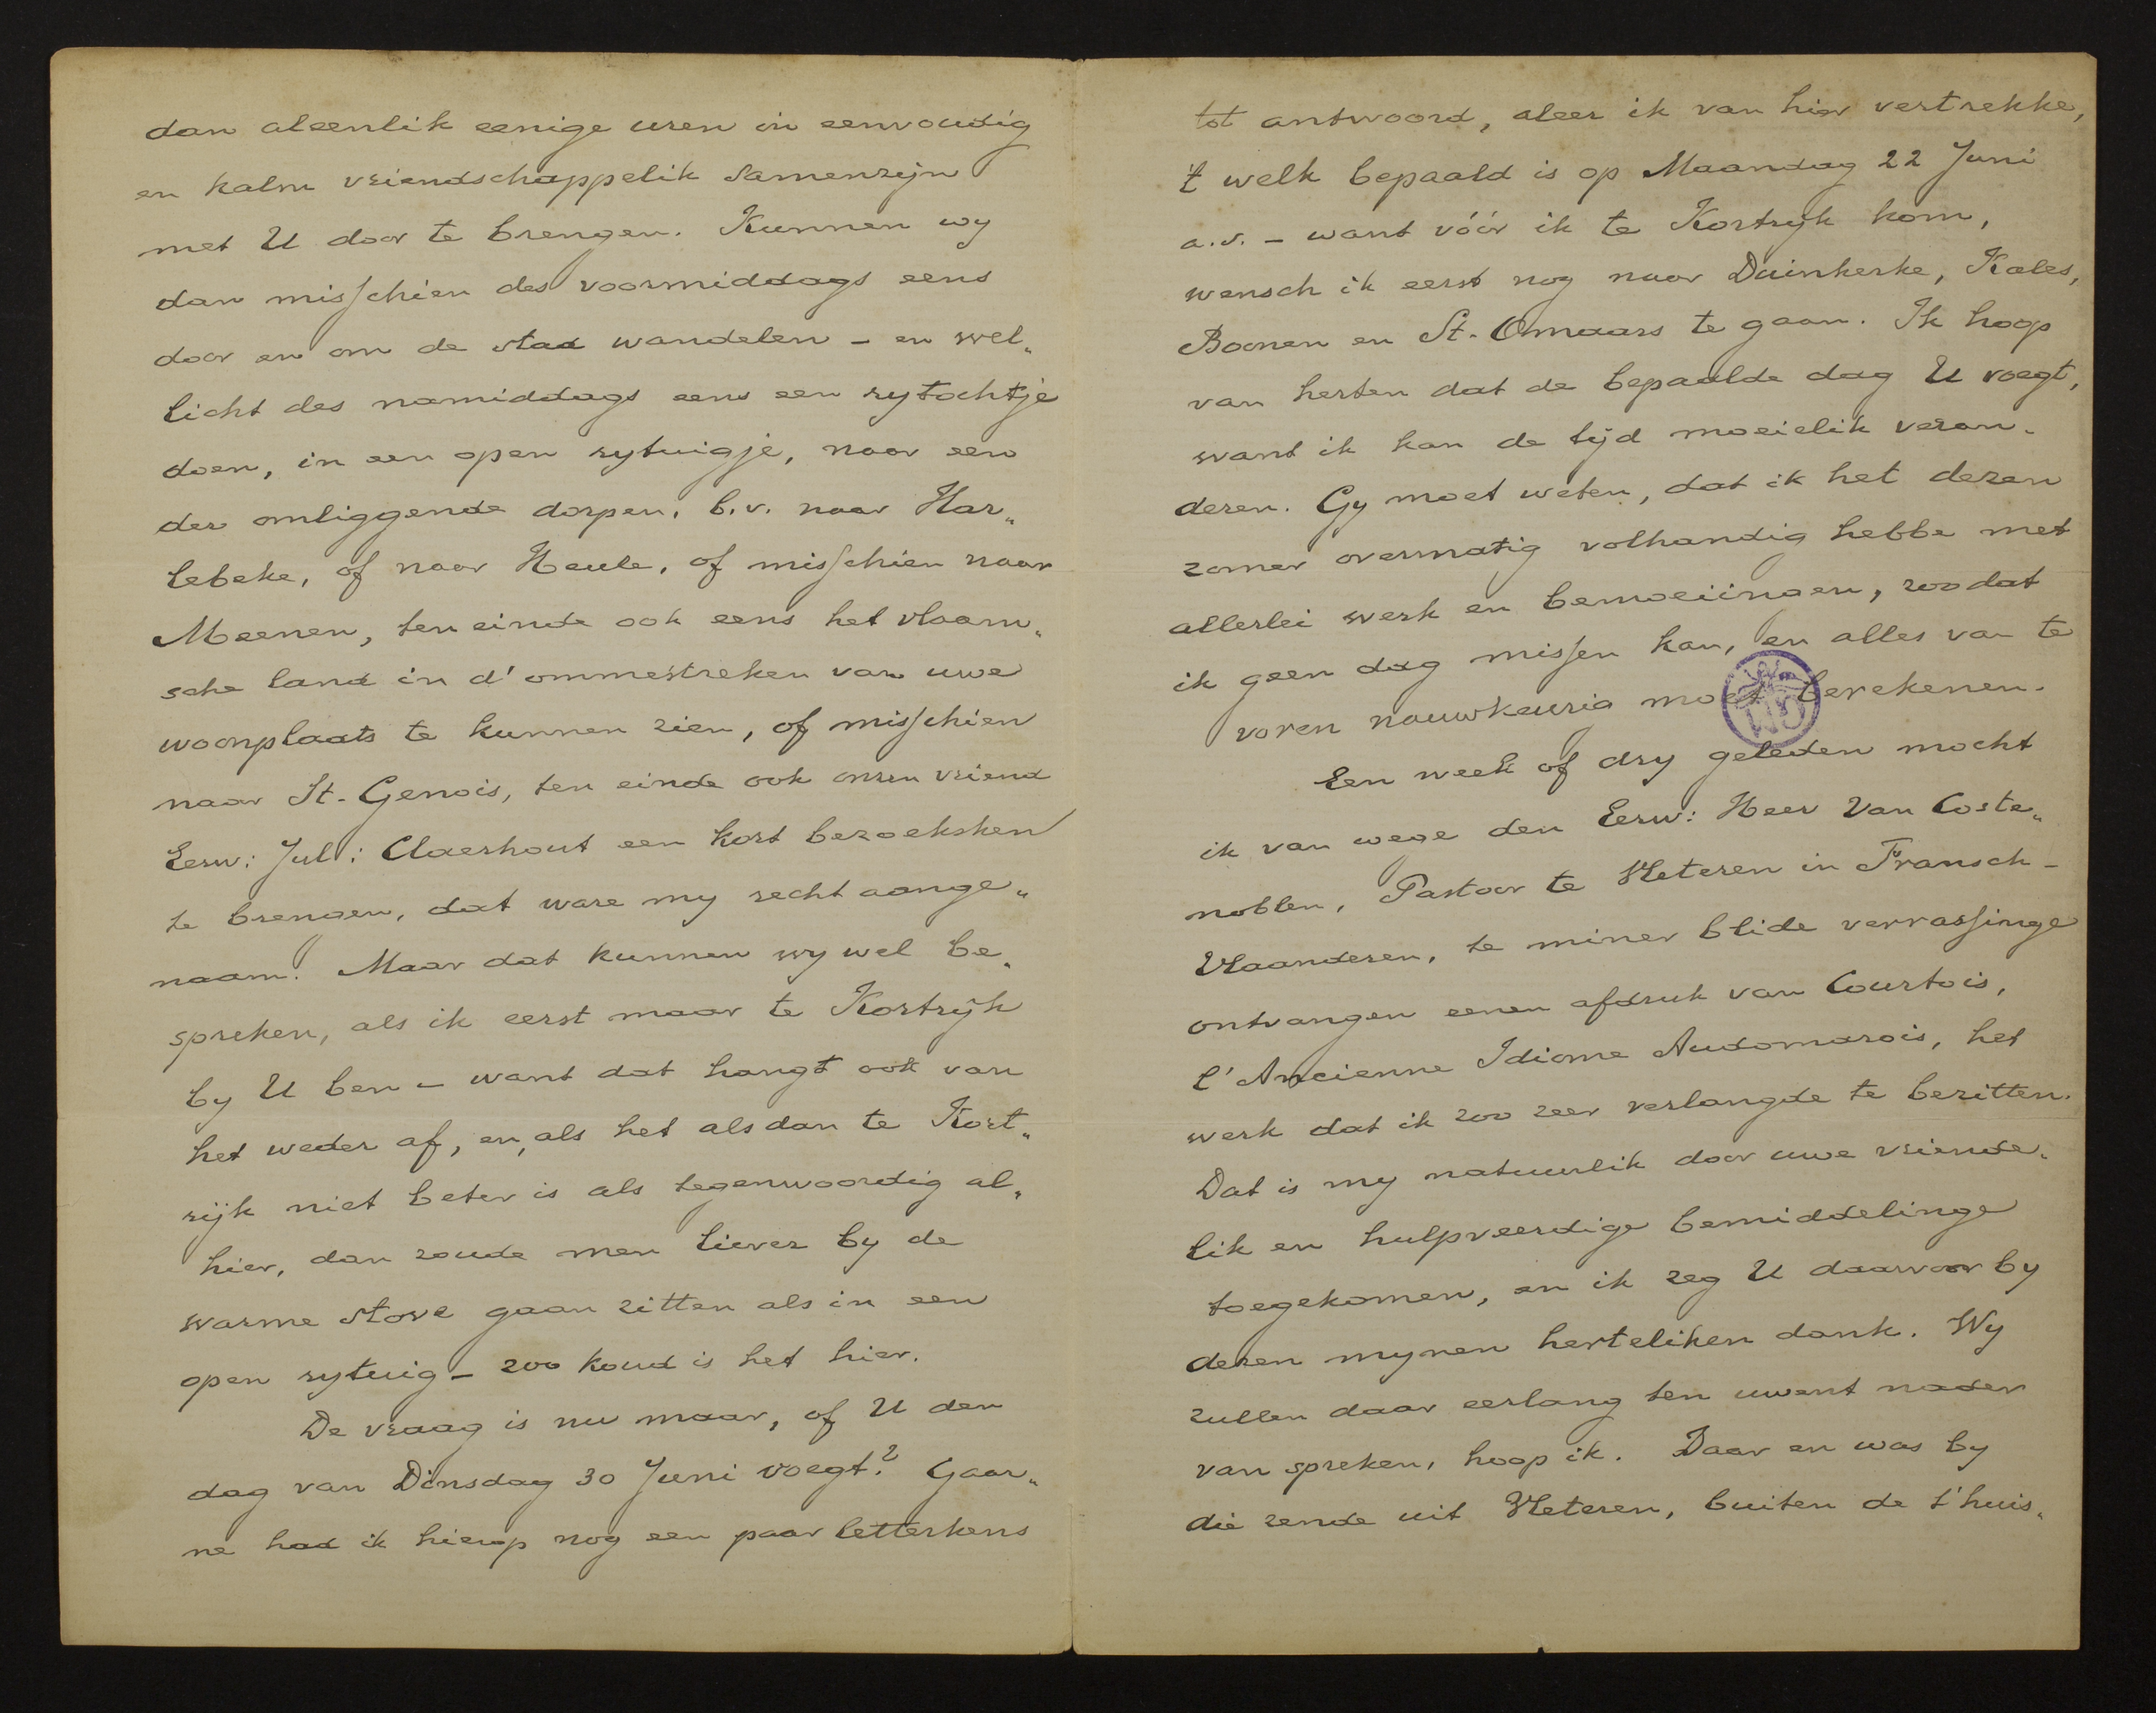 dan aleenlik eenige uren in eenvoudig
en kalm vriendschappelik samenzijn
met U door te brengen. Kunnen wy
dan misschien des voormiddags eens
door en om de stad wandelen - en wel„
licht des namiddags eens een rytochtje
doen, in een open rytuigje, naar een
der omliggende dorpen, b.v. naar Har„
lebeke, of naar Heule, of misschien naar
Meenen, ten einde ook eens het vlaam„
sche land in d'ommestreken van uwe
woonplaats te kunnen zien, of misschien
naar St-Genois, ten einde ook onzen vriend
Eerw: Jul: Claerhout een kort bezoeksken
te brengen, dat ware my recht aange„
naam. Maar dat kunnen wy wel be„
spreken, als ik eerst maar te Kortrijk
by U ben - want dat hangt ook van
het weder af, en, als het alsdan te Kort„
rijk niet beter is als tegenwoordig al„
hier, dan zoude men liever by de
warme stove gaan zitten als in een
open rytuig - zoo koud is het hier.
De vraag is nu maar, of U den
dag van Dinsdag 30 Juni voegt? Gaar„
ne had ik hierop nog een paar letterkens
tot antwoord, aleer ik van hier vertrekke,
't welk bepaald is op Maandag 22 Juni
a.s. - want vóór ik te Kortrijk kom,
wensch ik eerst nog naar Duinkerke, Kales,
Boonen en St-Omaars te gaan. Ik hoop
van herten dat de bepaalde dag U voegt,
want ik kan de tijd moeielik veran„
deren. Gy moet weten, dat ik het dezen
zomer overmatig volhandig hebbe met
allerlei werk en bemoeiingen, zoodat
ik geen dag missen kan, en alles van te
voren nauwkeurig moet berekenen.
Een week of dry geleden mocht
ik van wege den Eerw: Heer Van Coste„
noblen, Pastoor te Vleteren in Fransch-
Vlaanderen, te miner blide verrassinge
ontvangen eenen afdruk van Courtois,
l'Ancienne Idiome Audomarois, het
werk dat ik zoo zeer verlangde te bezitten.
Dat is my natuurlik door uwe vriende„
lik en hulpveerdige bemiddelinge
toegekomen, en ik zeg U daarvoor by
dezen mynen herteliken dank. Wy
zullen daar eerlang ten uwent nader
van spreken, hoop ik. Daar en was by
die zende uit Vleteren, buiten de t'huis„